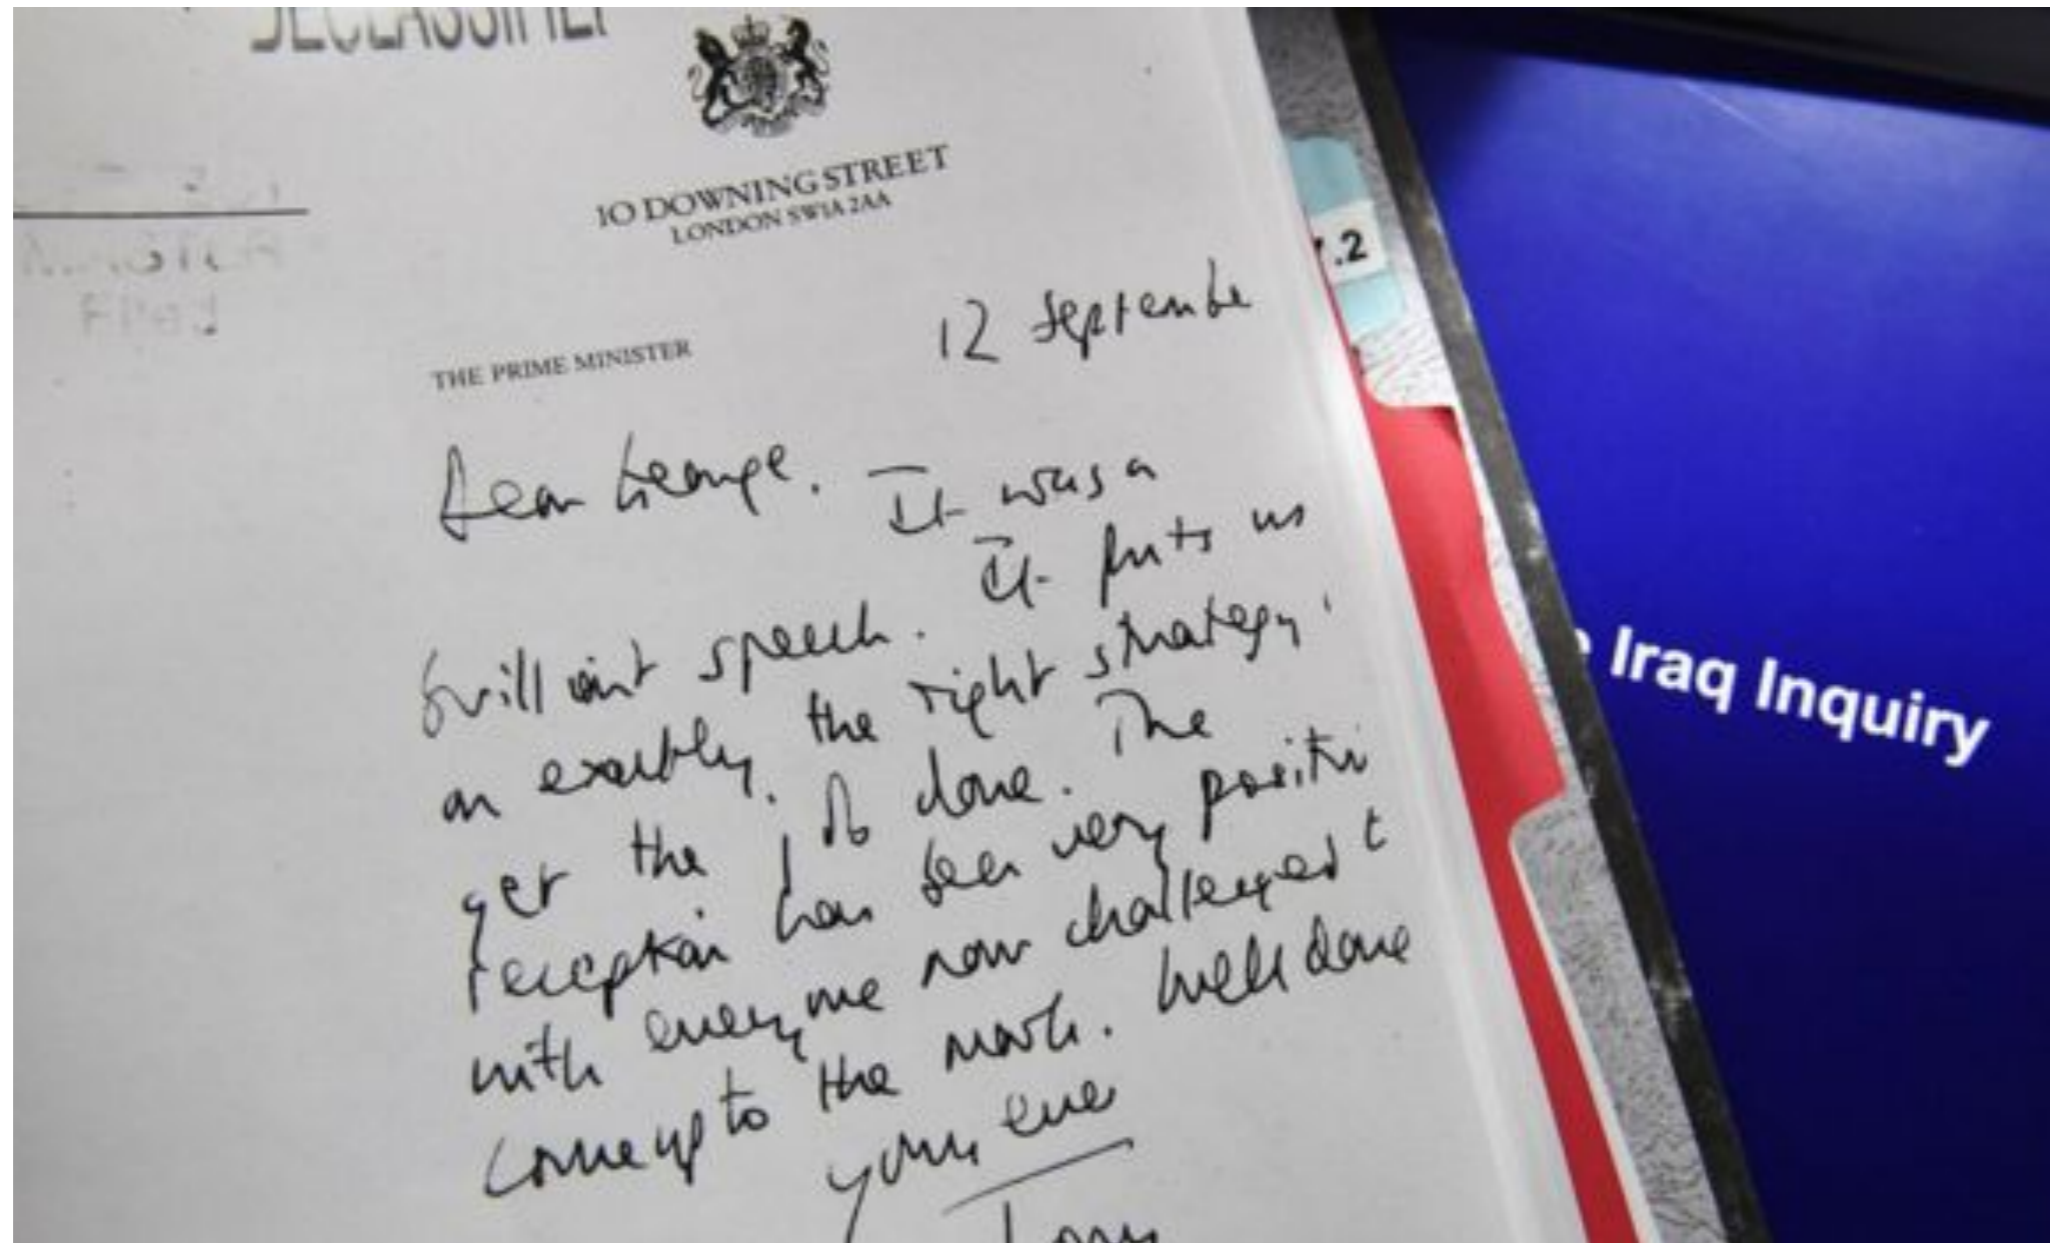 DECLASSIFIED
10 DOWNING STREET
LONDON SW1A 2AA
THE PRIME MINISTER
12 September
Dear George. It was a
brilliant speech. It puts us
on exactly the right strategy
get the job done. The
reception has been very positive
with everyone now challenged t
come up to the mark. Well done
yours ever
Tony
.2
Iraq Inquiry